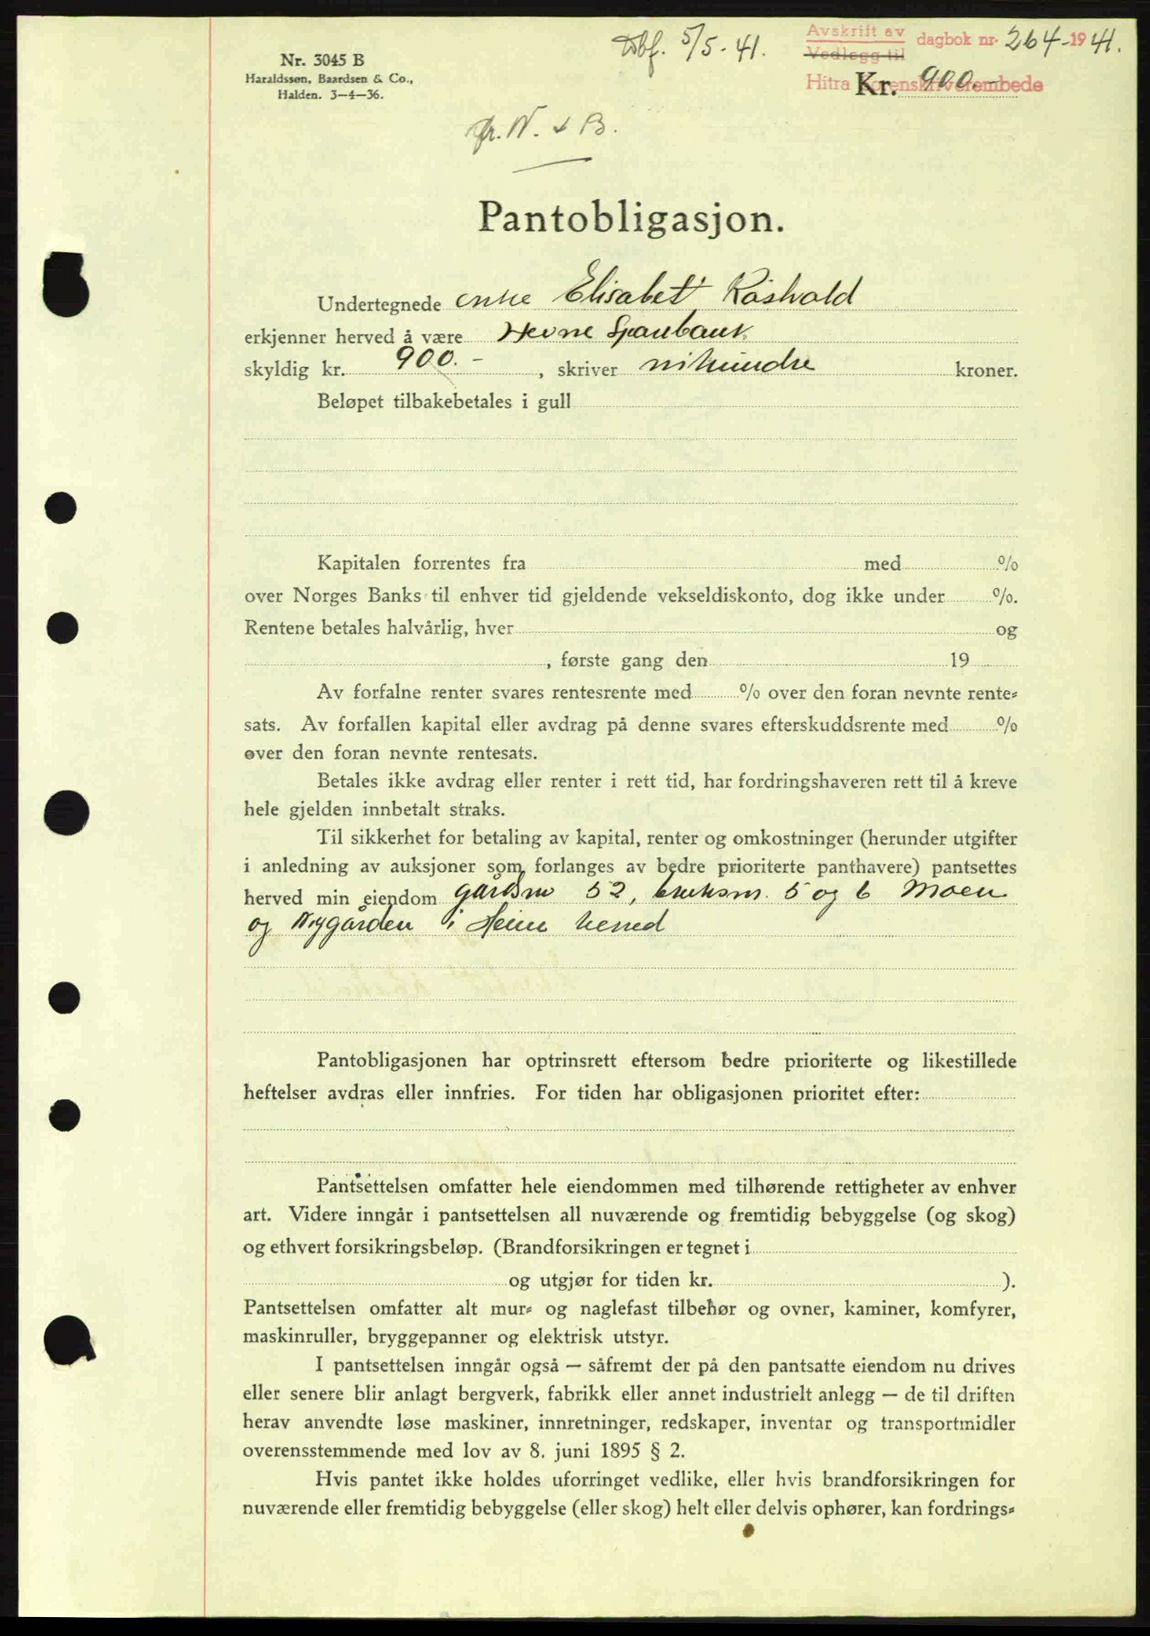 Dbf. 5/5-41.
Avskrift av
Vedlegg til
dagbok nr. 264-1941.
Hitra Sorenskriverembede
Nr. 3045 B
Haraldssen, Baardsen & Co.,
Halden. 3-4-36.
Kr. 900.-
Pantobligasjon.
Undertegnede enke Elisabet Råshold
erkjenner herved å være Hevne Sparebank
skyldig kr. 900.- , skriver nihundre kroner.
Beløpet tilbakebetales i gull
Kapitalen forrentes fra med %
over Norges Banks til enhver tid gjeldende vekseldiskonto, dog ikke under %.
Rentene betales halvårlig, hver og
, første gang den 19
Av forfalne renter svares rentesrente med % over den foran nevnte rente-
sats. Av forfallen kapital eller avdrag på denne svares efterskuddsrente med %
over den foran nevnte rentesats.
Betales ikke avdrag eller renter i rett tid, har fordringshaveren rett til å kreve
hele gjelden innbetalt straks.
Til sikkerhet for betaling av kapital, renter og omkostninger (herunder utgifter
i anledning av auksjoner som forlanges av bedre prioriterte panthavere) pantsettes
herved min eiendom gårdsnr 52, bruksnr. 5 og 6 Moen
og Nygården i Heim herred
Pantobligasjonen har optrinsrett eftersom bedre prioriterte og likestillede
heftelser avdras eller innfries. For tiden har obligasjonen prioritet efter:
Pantsettelsen omfatter hele eiendommen med tilhørende rettigheter av enhver
art. Videre inngår i pantsettelsen all nuværende og fremtidig bebyggelse (og skog)
og ethvert forsikringsbeløp. (Brandforsikringen er tegnet i
og utgjør for tiden kr. ).
Pantsettelsen omfatter alt mur- og naglefast tilbehør og ovner, kaminer, komfyrer,
maskinruller, bryggepanner og elektrisk utstyr.
I pantsettelsen inngår også — såfremt der på den pantsatte eiendom nu drives
eller senere blir anlagt bergverk, fabrikk eller annet industrielt anlegg — de til driften
herav anvendte løse maskiner, innretninger, redskaper, inventar og transportmidler
overensstemmende med lov av 8. juni 1895 § 2.
Hvis pantet ikke holdes uforringet vedlike, eller hvis brandforsikringen for
nuværende eller fremtidig bebyggelse (eller skog) helt eller delvis ophører, kan fordrings-